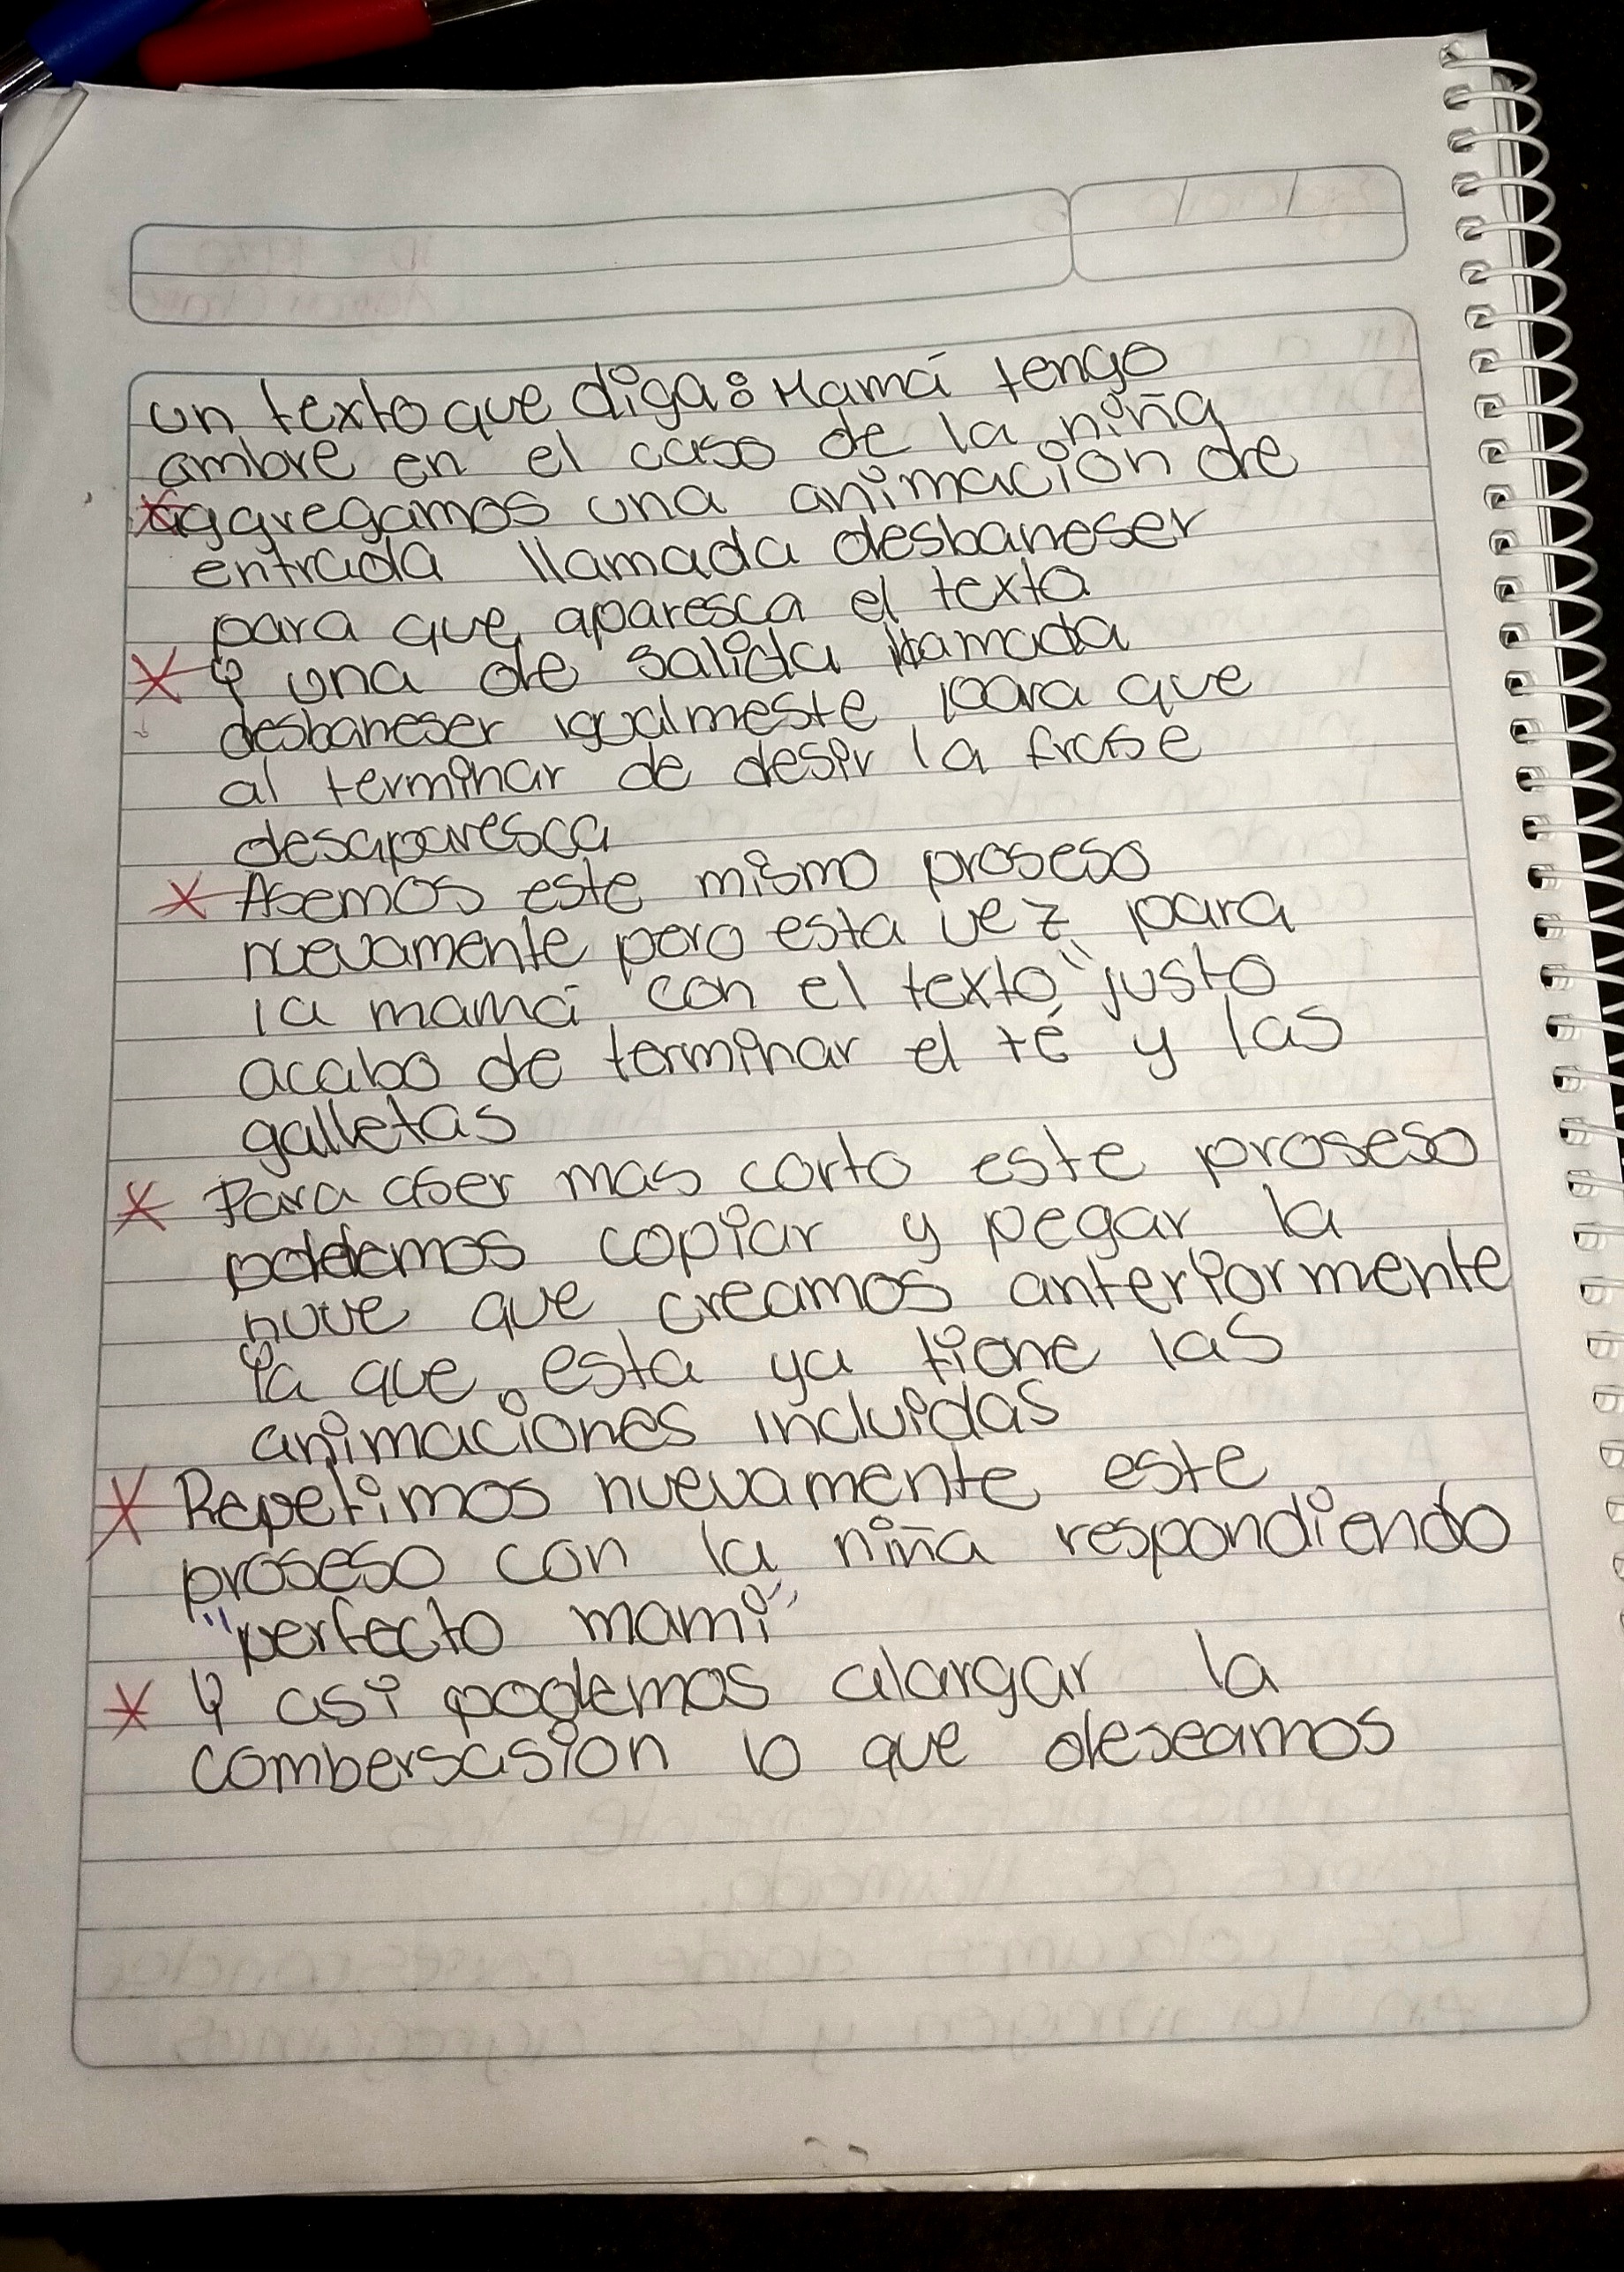 un texto que diga: Mamá tengo
ambre en el caso de la niña
* aggregamos una animación de
entrada llamada desbaneser
para que aparesca el texto
* Y una de salida llamada
desbaneser igualmeste para que
al terminar de desir la frase
desaparesca
* Asemos este mismo proseso
nuevamente pero esta vez para
la mamá con el texto "justo
acabo de terminar el té y las
galletas
* Para aser mas corto este proseso
podemos copiar y pegar la
nuve que creamos anteriormente
Ya que esta ya tiene las
animaciones incluidas
* Repetimos nuevamente este
proseso con la niña respondiendo
"perfecto mami"
* Y asi podemos alargar la
combersasion lo que deseamos